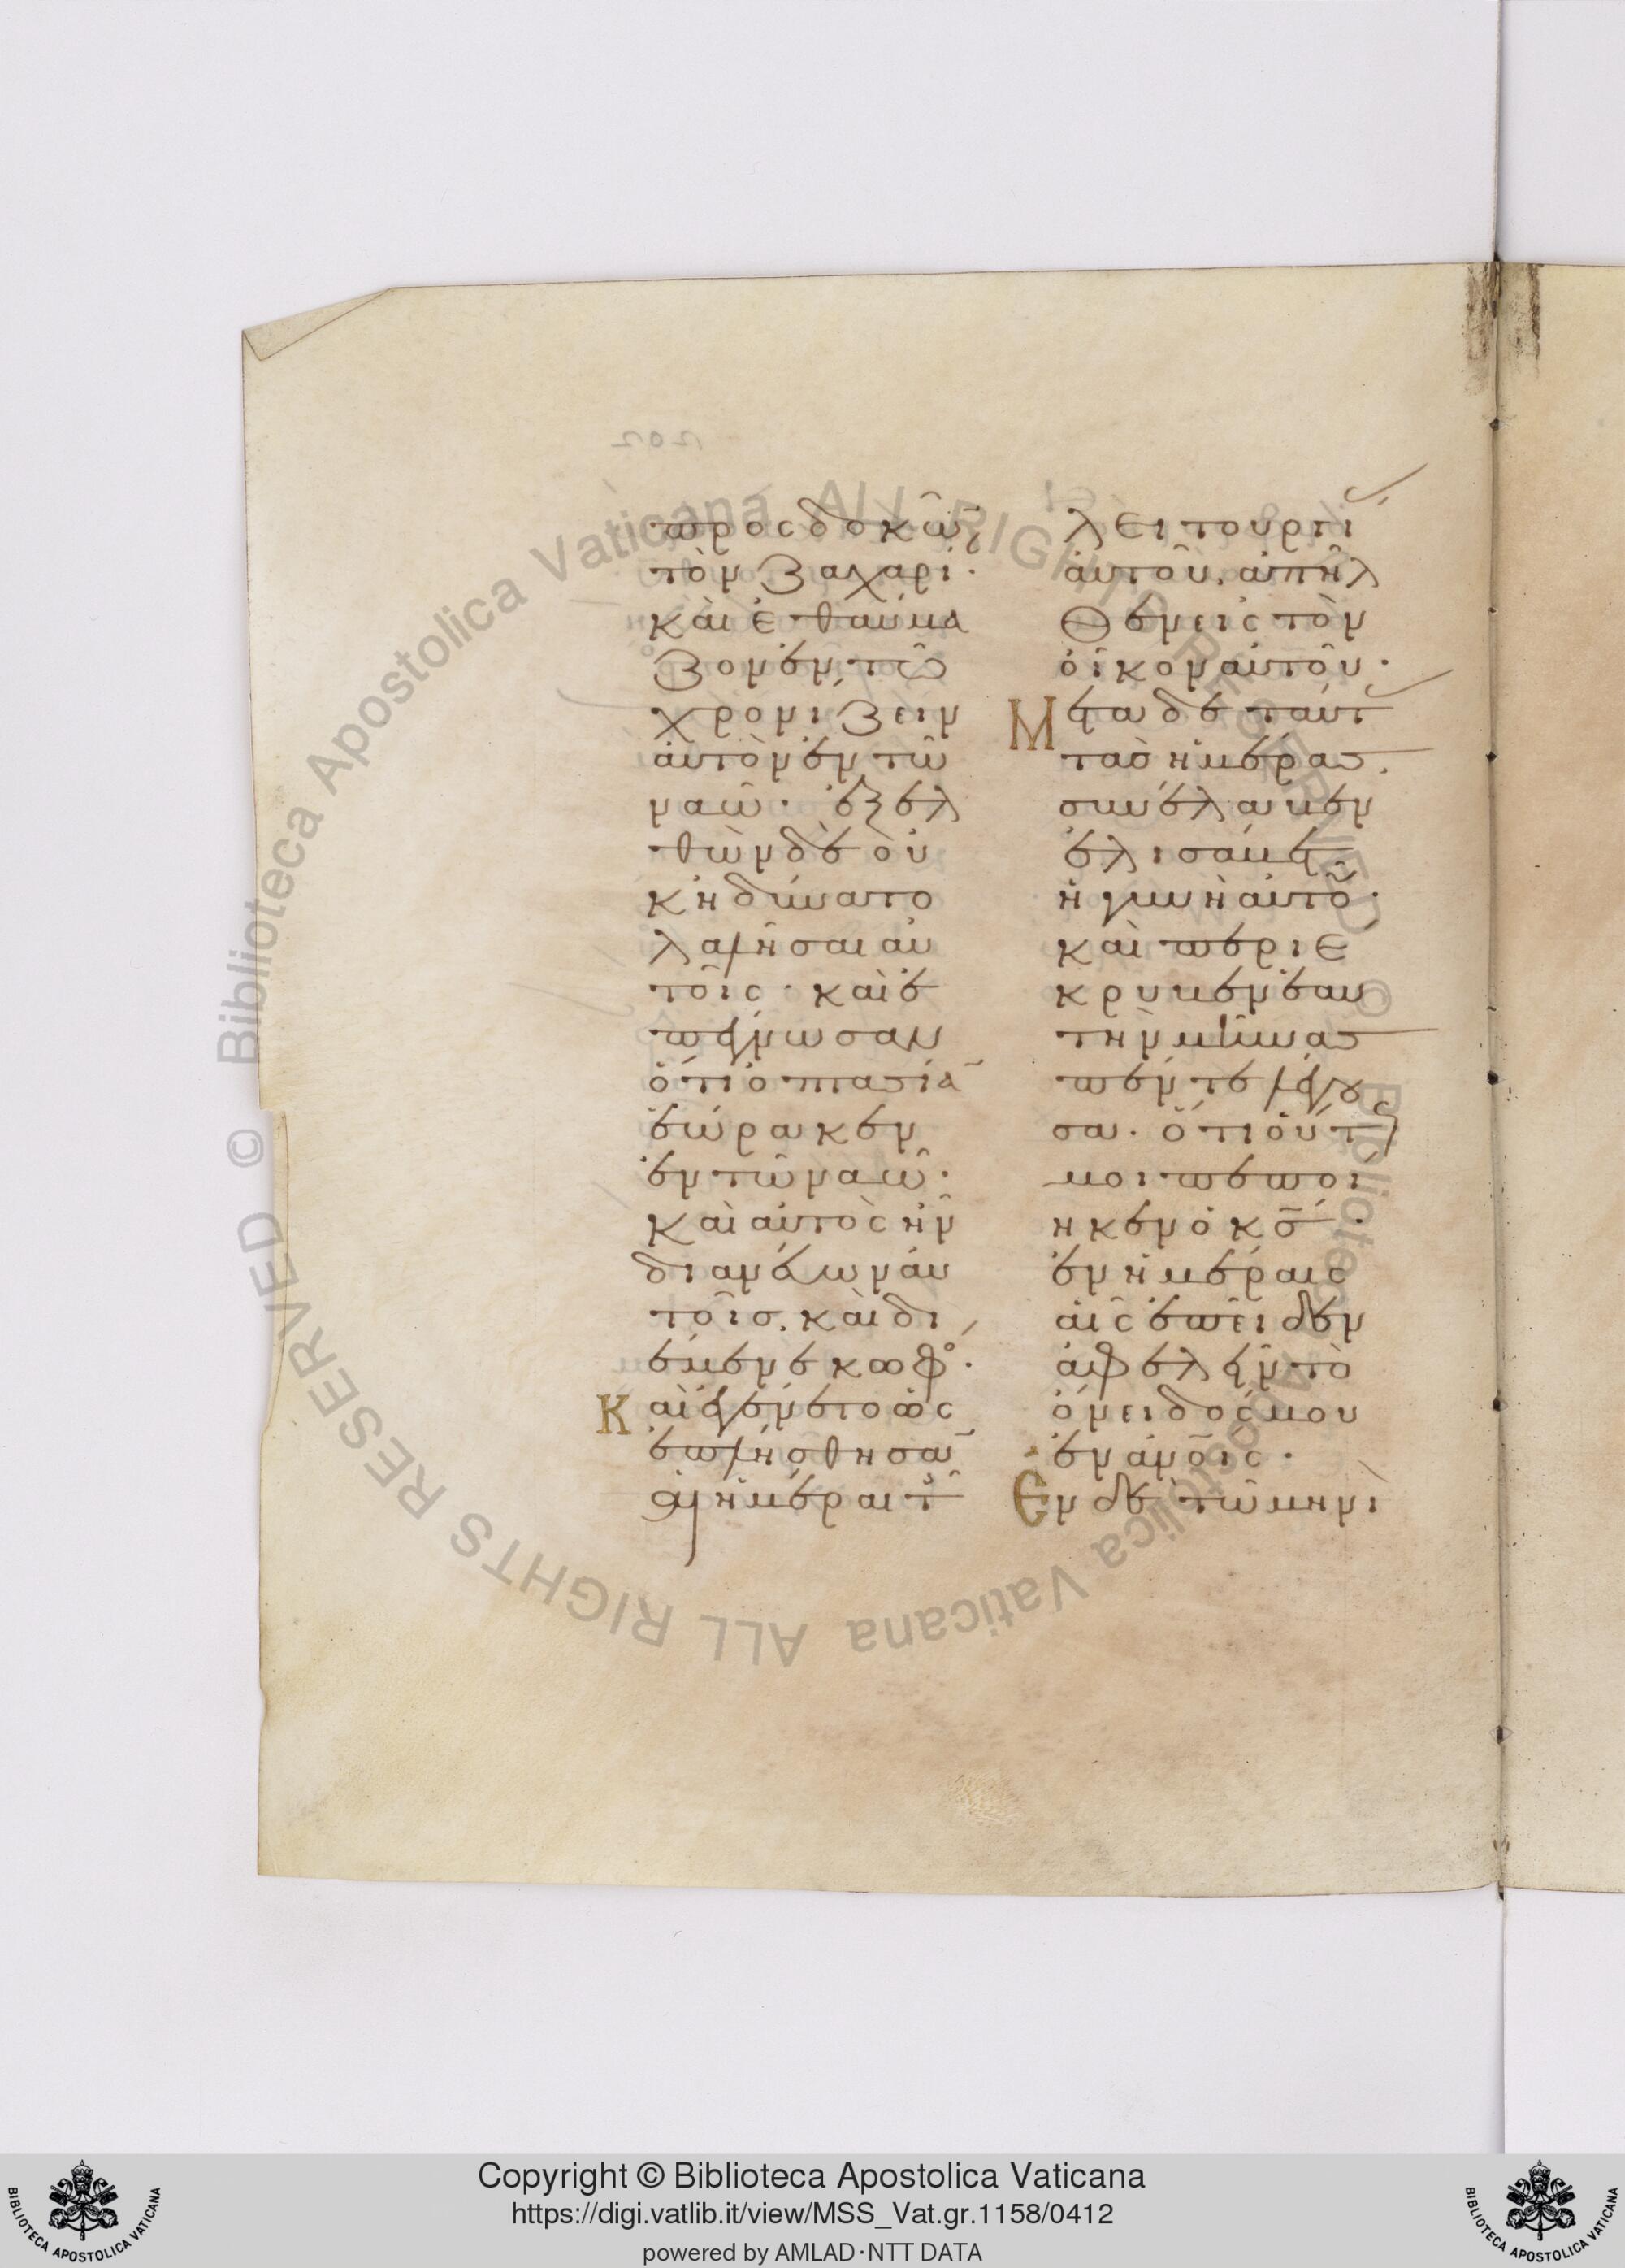 προσδοκῶν
τὸν Ζαχαρί·
καὶ ἐθαύμα
ζον ἐν τῶ
χρονίζειν
αὐτὸν ἐν τῶ
ναῶ· ἐξελ
θὼν δὲ οὐ
κ ἠδύνατο
λαλῆσαι αὐ
τοῖς· καὶ ἐ
πέγνωσαν
ὅτι ὀπτασία
ἑώρακεν
ἐν τῶ ναῶ·
καὶ αὐτὸς ἦν
διανεύων αὐ
τοῖς. καὶ δι
έμενε κωφό·
Καὶ ἐγένετο ὡς
ἐπλήσθησαν
αἱ ἡμέραι τῆς
λειτουργί
αὐτοῦ. ἀπῆλ
θεν εἰς τὸν
οἶκον αὐτοῦ·
Μετα δὲ ταύτ
τὰς ἡμέρας.
συνέλαβεν
ἐλισάβετ
ἡ γυνὴ αὐτοῦ·
καὶ περιέ
κρυβεν ἑαυ
τὴν μῆνας
πέντε λέγου
σα· ὅτι οὕτω
μοι πεποί
ηκεν ὁ κς·
ἐν ἡμέραις
αἷς ἐπεῖδεν
ἀφελεῖν τὸ
ὄνειδός μου
ἐν ἀνοις·
Ἐν δὲ τῶ μηνὶ
Copyright © Biblioteca Apostolica Vaticana
https://digi.vatlib.it/view/MSS_Vat.gr.1158/0412
powered by AMLAD·NTT DATA
BIBLIOTECA APOSTOLICA VATICANA
BIBLIOTECA APOSTOLICA VATICANA
© Biblioteca Apostolica Vaticana ALL RIGHTS RESERVED